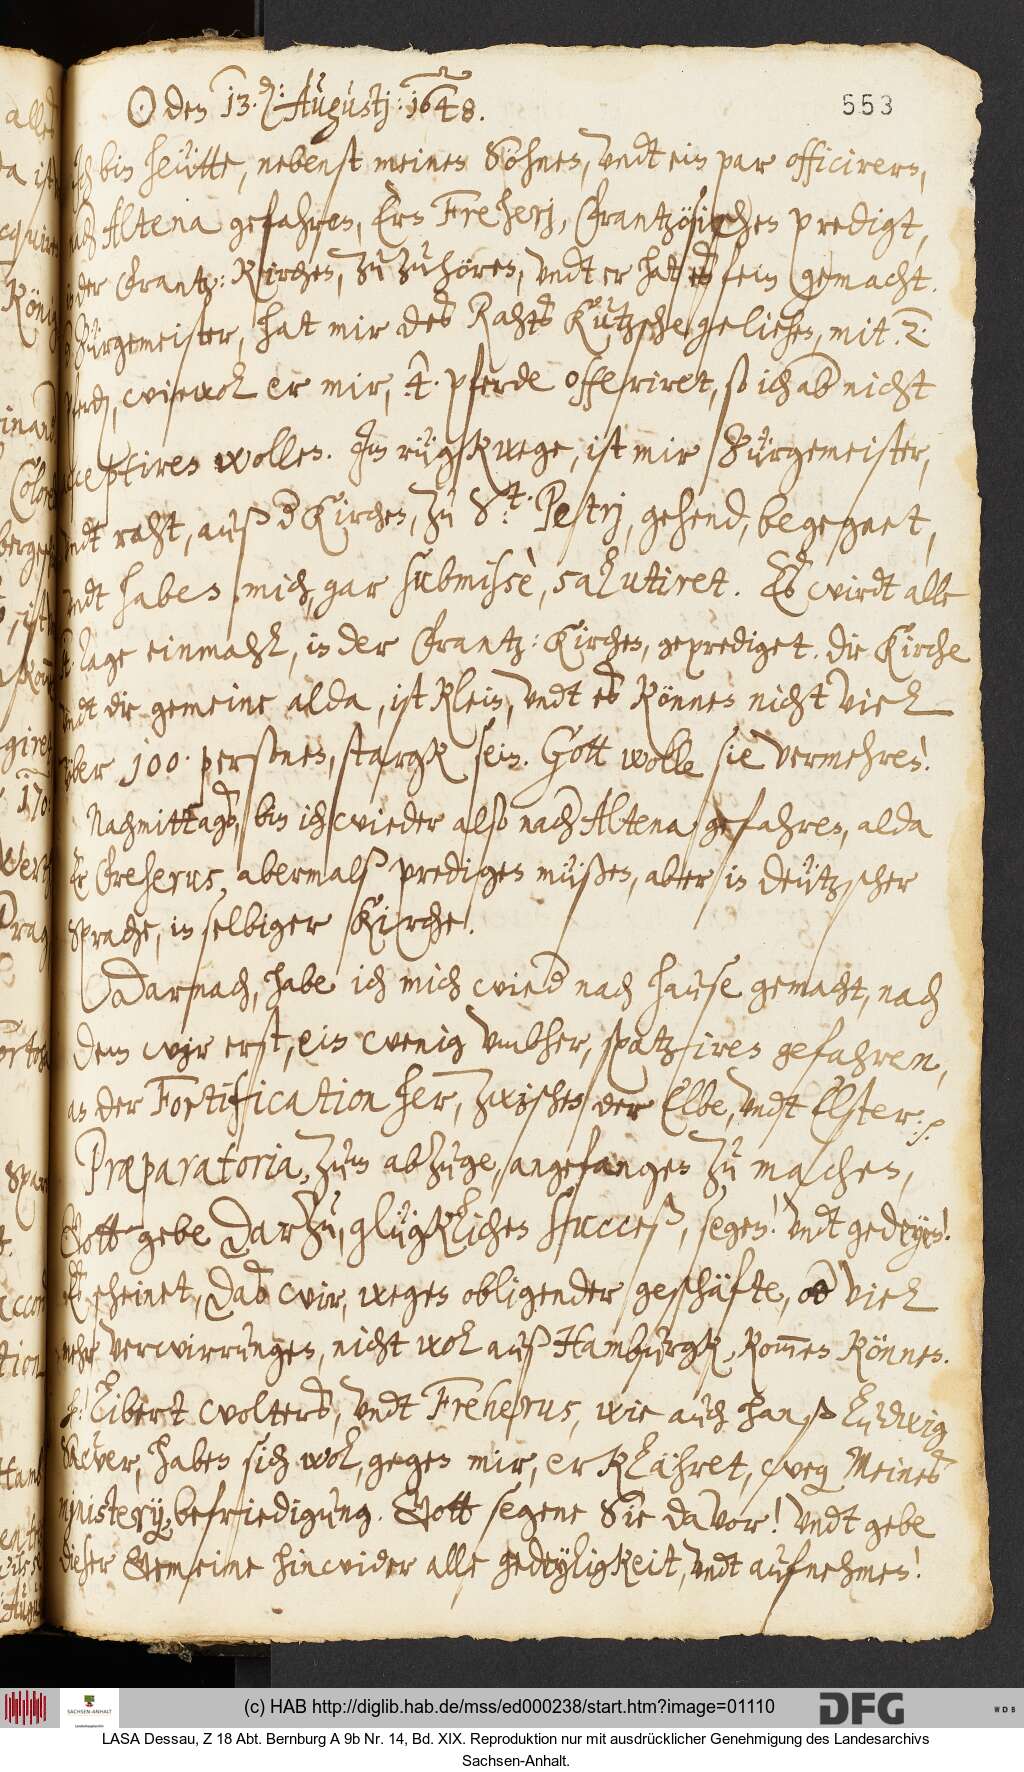 ☉ den 13. d: Augustj: 1648.
553
Ich bin heütte, nebenst meinen Söhnen, vndt ein par officirern,
nach Altena gefahren, Ern Freherj, Frantzösischen predigt,
in der Frantz: Kirchen, zu zuhören, vndt er hat es fein gemacht.
Bürgemeister, hat mir des Rahts Kutzsche geliehen, mit 2.
pferden, wiewol er mir, 4. pferde offeriret, so ich ab nicht
acceptiren wollen. Jm rügkwege, ist mir Bürgemeister,
vndt raht, auß d Kirchen, zu St: Petrj, gehend, begegnet,
vndt haben mich gar submissè, salutiret. Es wirdt alle
Tage einmahl, in der Frantz: Kirchen, geprediget. die Kirche
vndt die gemeine alda, ist klein, vndt es können nicht viel
vber 100. persohnen, stargk sein. Gott wolle sie vermehren!
Nachmittags, bin ich wieder also nach Altena gefahren, alda
Er Freherus, abermalß predigen müßen, aber in deützscher
Sprache, in selbiger Kirche.
Darnach, habe ich mich wied nach hause gemacht, nach
dem wir erst, ein wenig vmbher, spatziren gefahren,
an der Fortification her, zwischen der Elbe, vndt Elster.
Præparatoria, zum abzuge, angefangen zu machen,
Gott gebe darzu, glügklichen Succeß, segen! vndt gedeyen!
Es scheinet, das wir, wegen obligender geschäfte, od viel
mehr verwirrungen, nicht wol auß Hamburgk, kom̄en können.
Eibert Wolters, vndt Freherus, wie auch Hanß Ludwig
Sauer, haben sich wol, gegen mir, erklähret, weg Meines
ministerij befriedigung. Gott segene Sie davor! vndt gebe
dieser Gemeine hinwider alle gedeyligkeit, vndt aufnehmen!
(c) HAB http://diglib.hab.de/mss/ed000238/start.htm?image=01110
DFG
WDB
SACHSEN-ANHALT
LASA Dessau, Z 18 Abt. Bernburg A 9b Nr. 14, Bd. XIX. Reproduktion nur mit ausdrücklicher Genehmigung des Landesarchivs
Sachsen-Anhalt.